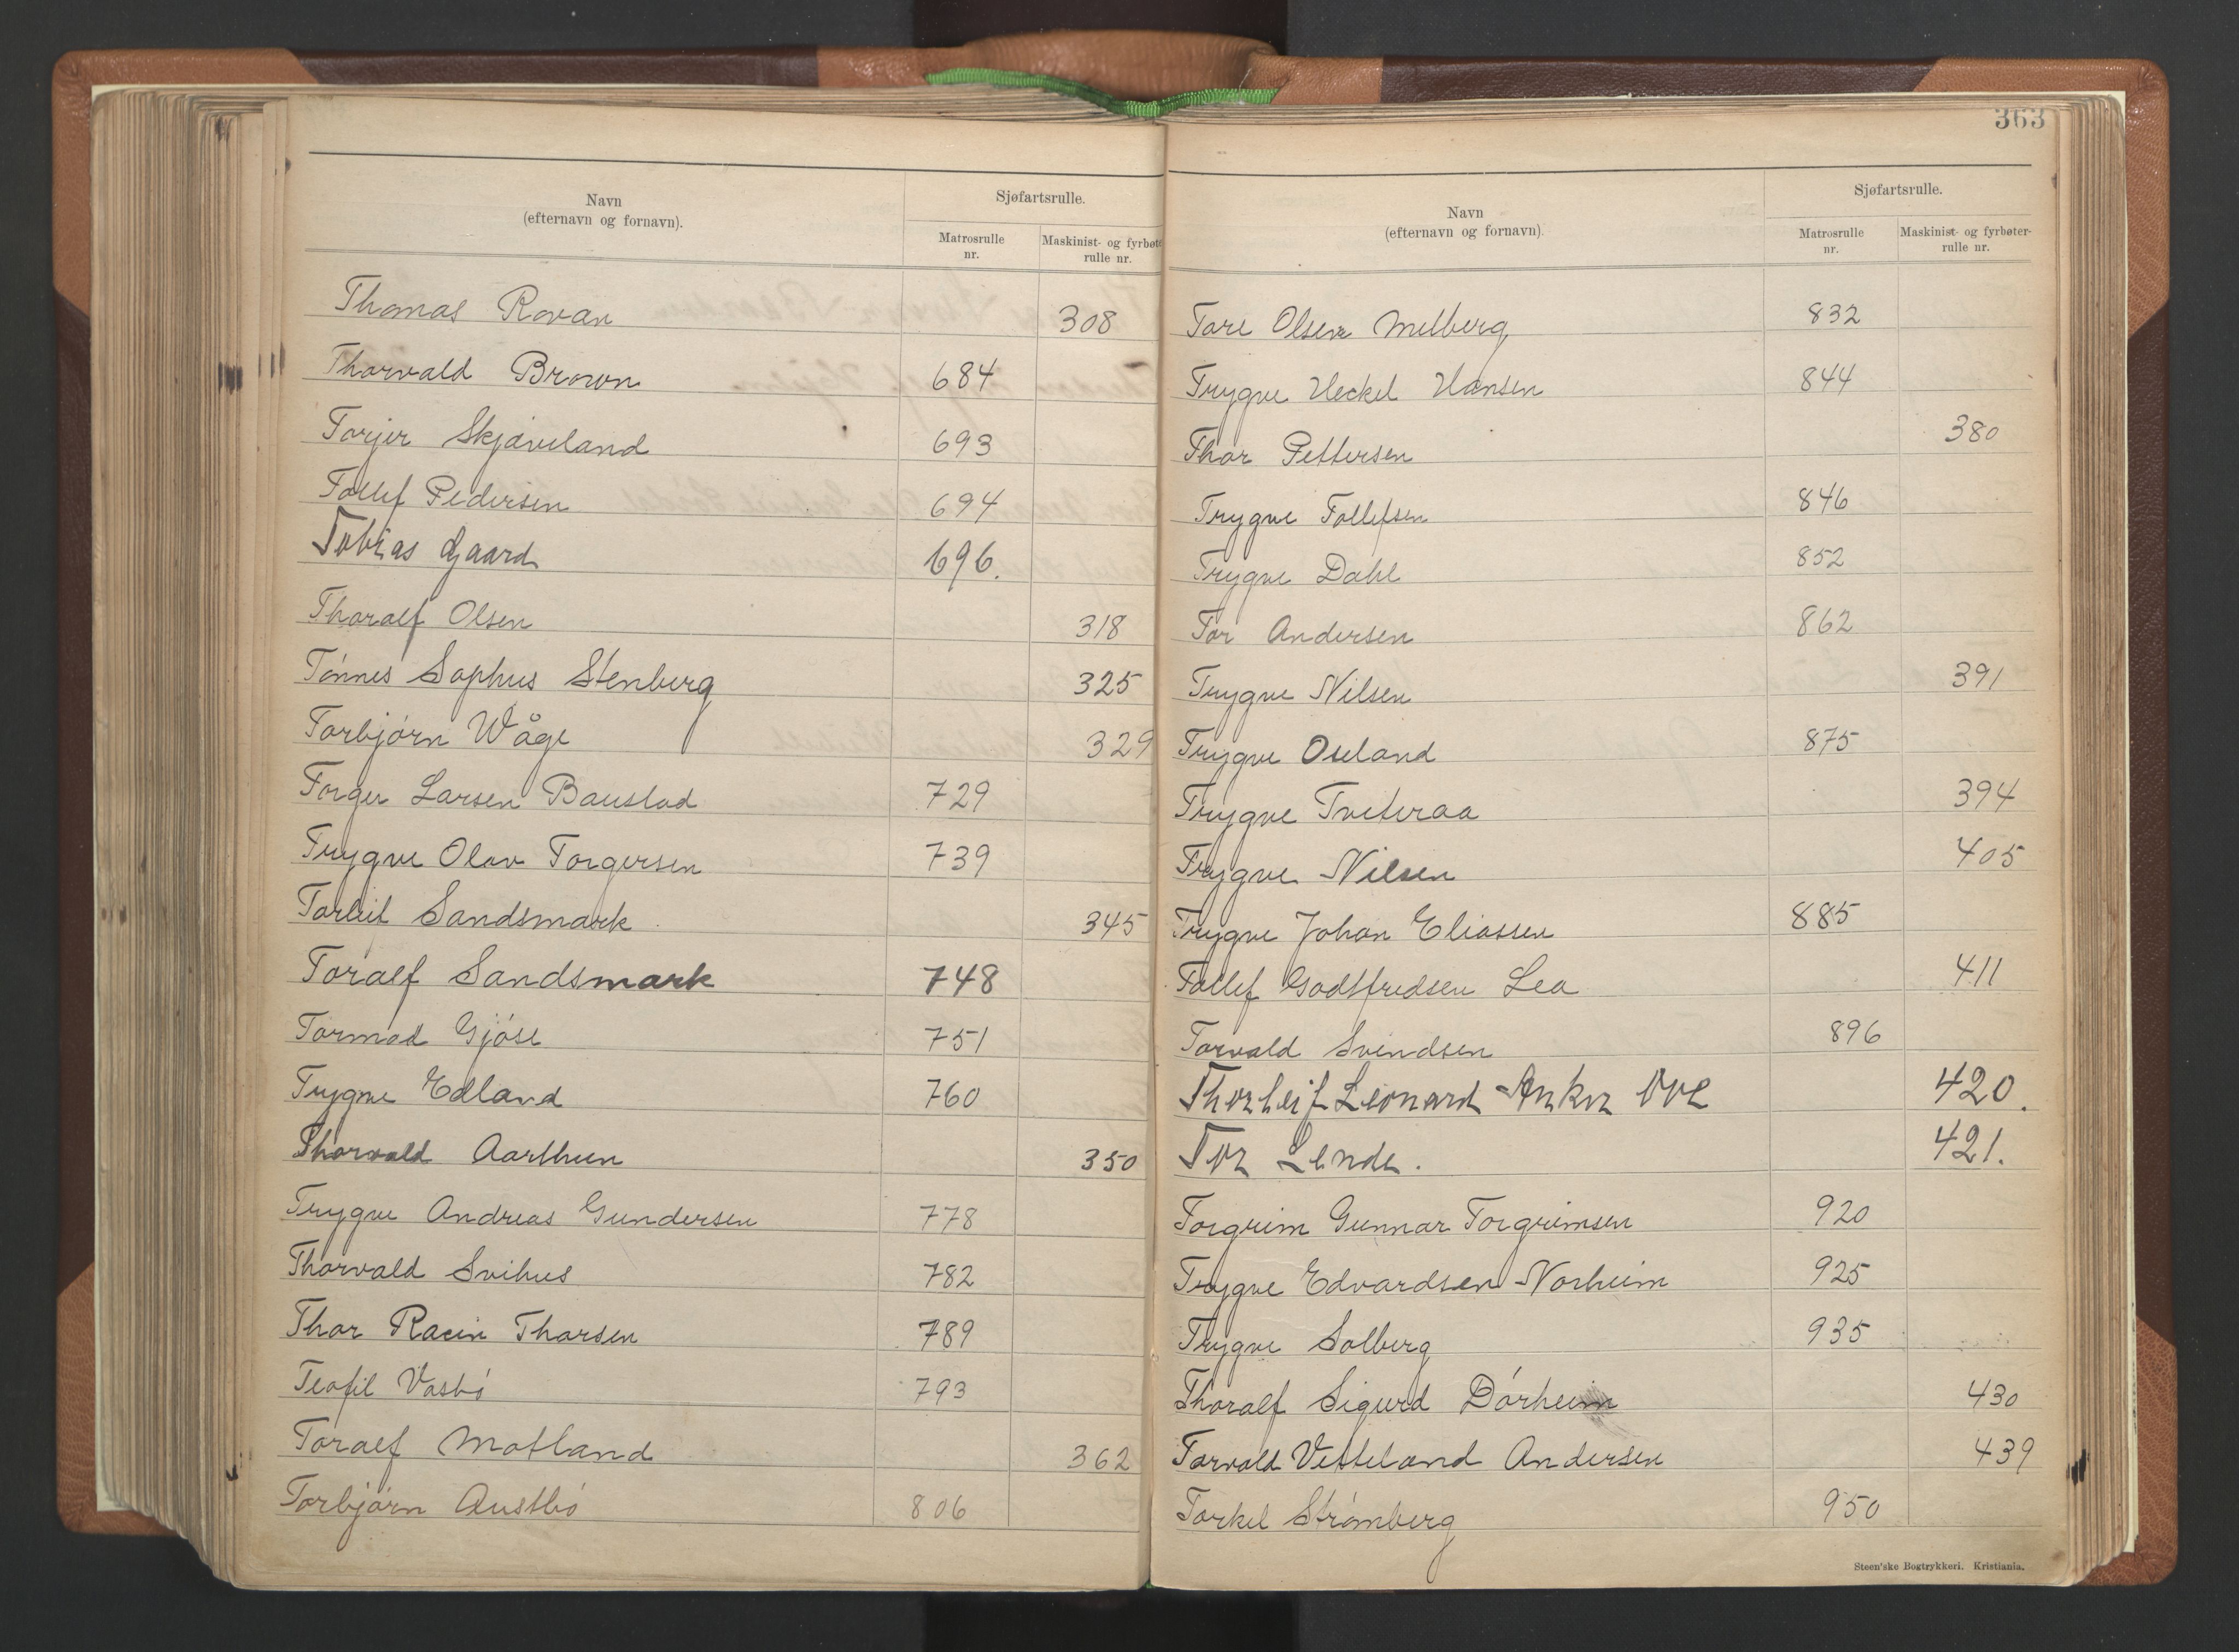 Navn
(efternavn og fornavn).
Sjøfartsrulle.
Matrosrulle
nr.
Maskinist- og fyrbøt
rulle nr.
Thomas Rovan 308
Thorvald Brown 684
Torjer Skjæveland 693
Tollef Pedersen 694
Tobias Gaard 696.
Thoralf Olsen 318
Tönnes Sophus Stenberg 325
Torbjörn Wåge 329
Torger Larsen Baustad 729
Trygve Olav Torgersen 739
Torkil Sandsmark 345
Toralf Sandsmark 748
Tormod Gjöse 751
Trygve Edland 760
Thorvald Aarthun 350
Trygve Andreas Gundersen 778
Thorvald Svihus 782
Thor Racin Thorsen 789
Teofil Vasbö 793
Toralf Motland 362
Torbjörn Austbö 806
363
Navn
(efternavn og fornavn).
Sjøfartsrulle.
Matrosrulle
nr.
Maskinist- og fyrbøter-
rulle nr.
Tore Olsen Melberg 832
Trygve Heckel Hansen 844
Thor Pettersen 380
Trygve Tollefsen 846
Trygve Dahl 852
Tor Andersen 862
Trygve Nilsen 391
Trygve Oseland 875
Trygve Tveteraa 394
Trygve Nilsen 405
Trygve Johan Eliassen 885
Tollef Godtfredsen Lea 411
Torvald Svendsen 896
Thorleif Leonard Anker 420.
Tor Lende. 421.
Torgrim Gunnar Torgrimsen 920
Trygve Edvardsen Norheim 925
Trygve Solberg 935
Thoralf Sigurd Dörheim 430
Torvald Vetteland Andersen 439
Torkel Strømberg 950
Steen'ske Bogtrykkeri. Kristiania.